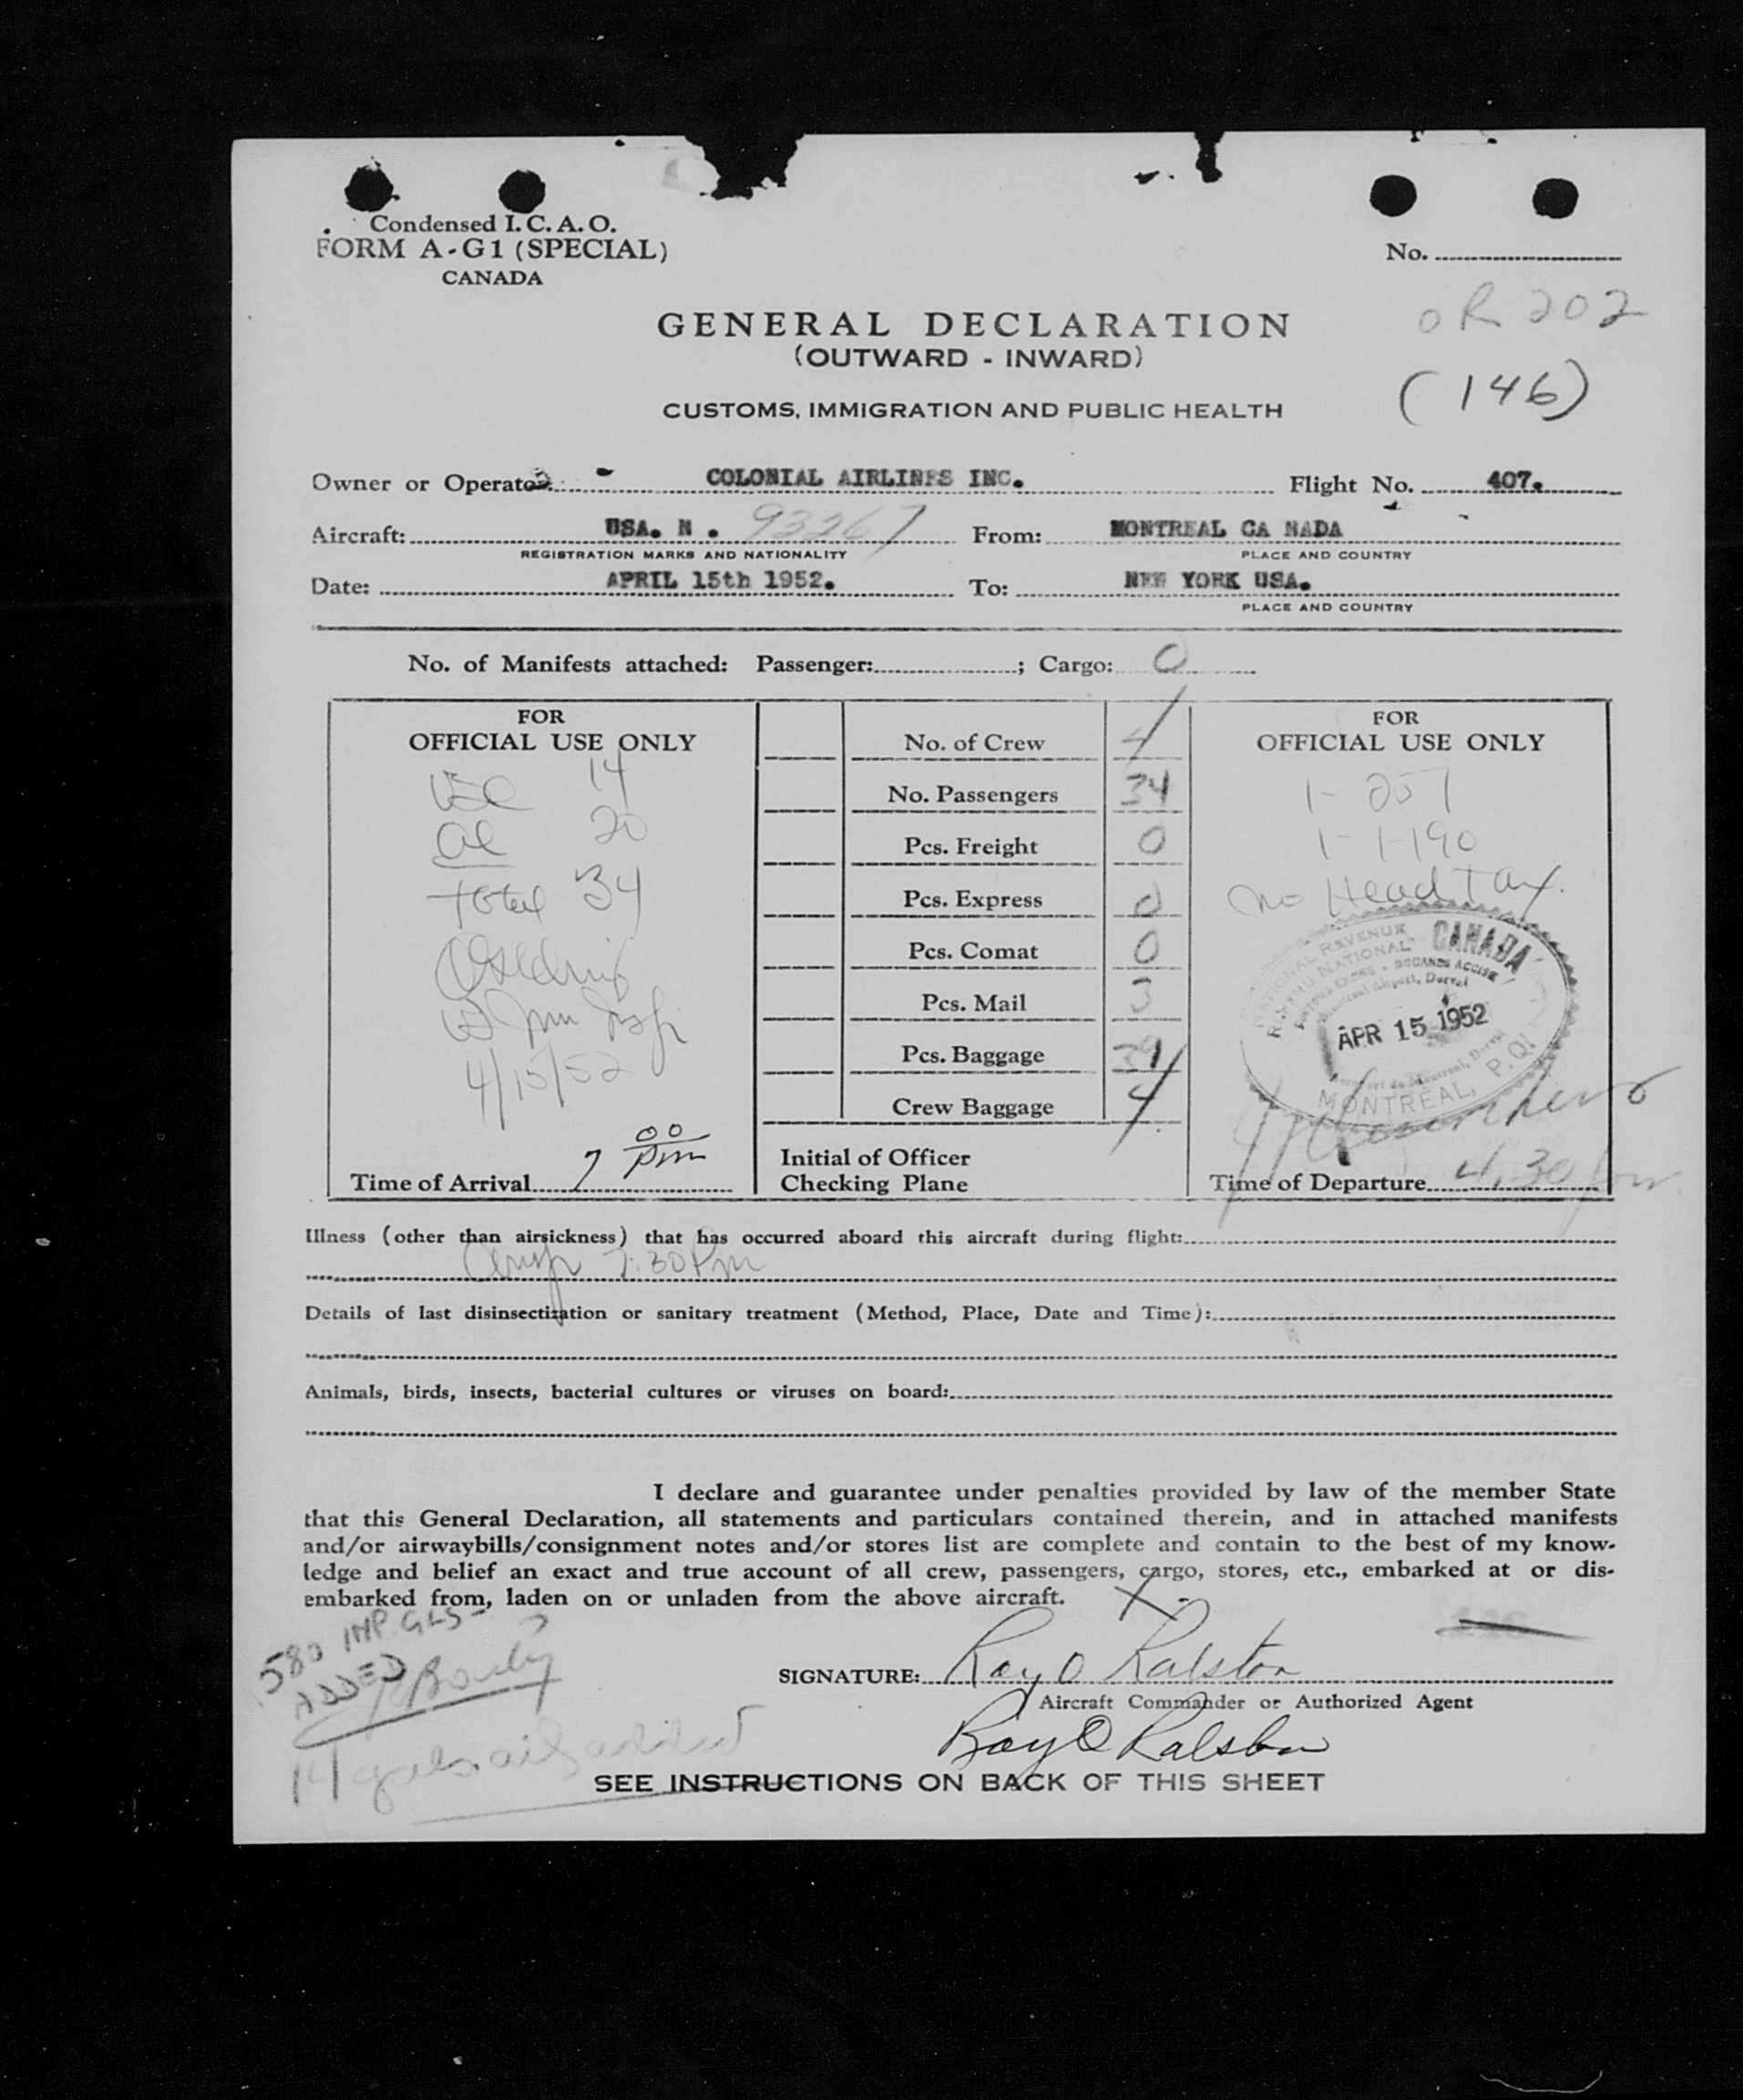 Condensed I. C. A. O.
FORM A-G1 (SPECIAL)
CANADA
No.
OR 202
(146)
GENERAL DECLARATION
(OUTWARD - INWARD)
CUSTOMS, IMMIGRATION AND PUBLIC HEALTH
Owner or Operator: COLONIAL AIRLINES INC. Flight No. 407.
Aircraft: USA. N . 93267 From: MONTREAL CA NADA
REGISTRATION MARKS AND NATIONALITY PLACE AND COUNTRY
Date: APRIL 15th 1952. To: NEW YORK USA.
PLACE AND COUNTRY
No. of Manifests attached: Passenger: ; Cargo: 0
FOR
OFFICIAL USE ONLY
USC 14
al 20
Total 34
4/15/52
Time of Arrival 7 00 pm
No. of Crew 4
No. Passengers 34
Pcs. Freight 0
Pcs. Express 0
Pcs. Comat 0
Pcs. Mail 3
Pcs. Baggage
Crew Baggage 4
Initial of Officer
Checking Plane
FOR
OFFICIAL USE ONLY
1- 257
1- 1-190
no Head Tax.
NATIONAL REVENUE
REVENU NATIONAL
CANADA
DOUANES ACCISE
Montreal Airport, Dorval
APR 15 1952
MONTREAL, P.Q.
Time of Departure 4.30 pm
Illness (other than airsickness) that has occurred aboard this aircraft during flight:
7:30 Pm
Details of last disinsectization or sanitary treatment (Method, Place, Date and Time):
Animals, birds, insects, bacterial cultures or viruses on board:
I declare and guarantee under penalties provided by law of the member State
that this General Declaration, all statements and particulars contained therein, and in attached manifests
and/or airwaybills/consignment notes and/or stores list are complete and contain to the best of my know-
ledge and belief an exact and true account of all crew, passengers, cargo, stores, etc., embarked at or dis-
embarked from, laden on or unladen from the above aircraft. X
580 IMP. GLS-
ADDED
SIGNATURE: Ray O Ralston
Aircraft Commander or Authorized Agent
Ray O Ralston
14 gals. oil added
SEE INSTRUCTIONS ON BACK OF THIS SHEET